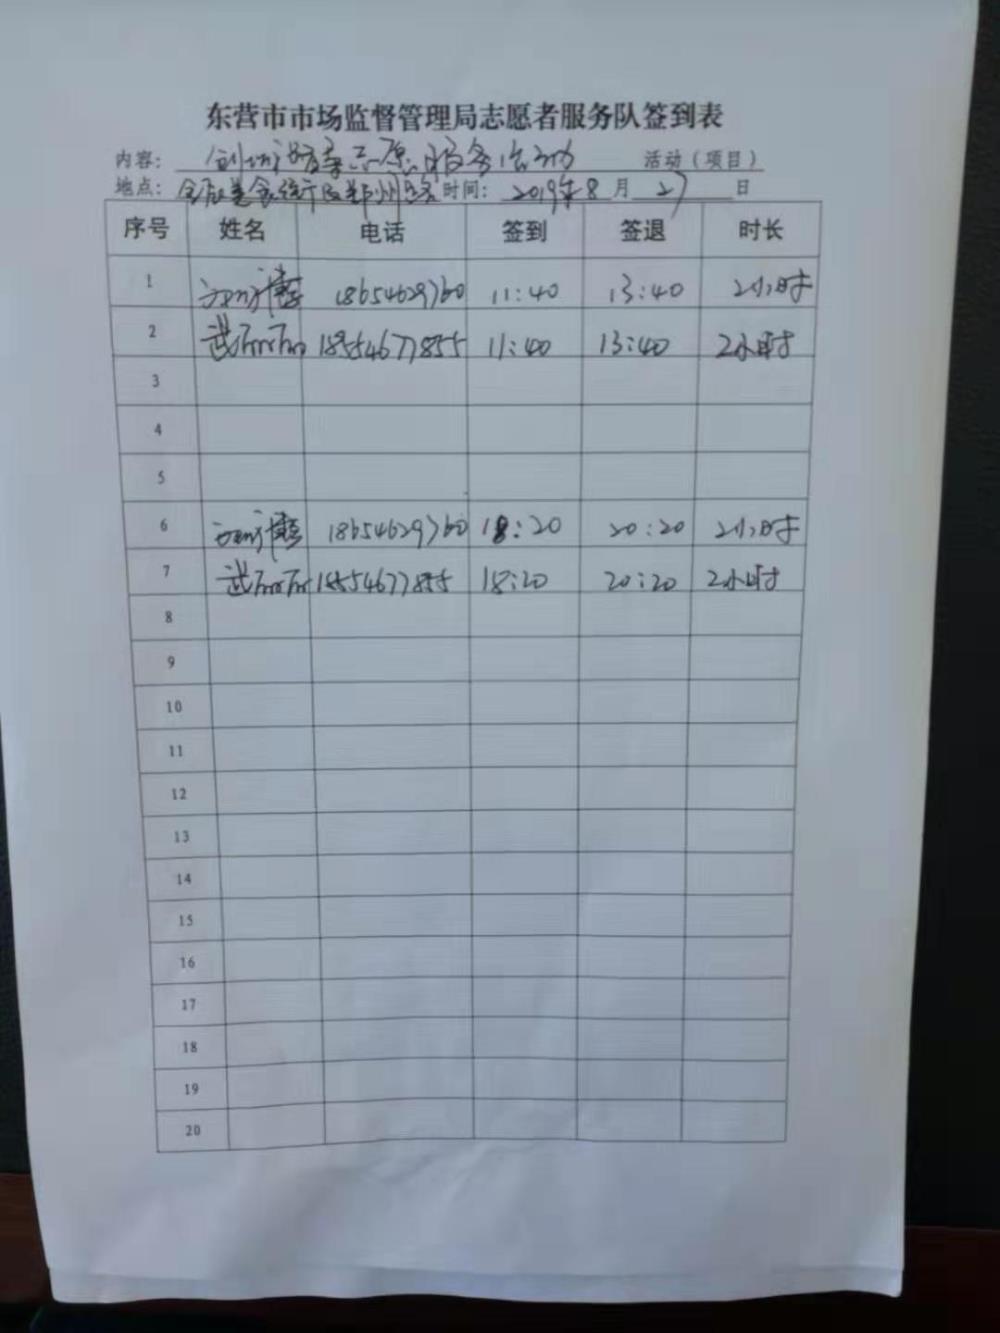 东营市市场监督管理局志愿者服务队签到表
内容： 创城 志愿服务活动 活动（项目）
地点： 郑州路 时间： 2019年8月27日
序号 姓名 电话 签到 签退 时长
1 18654629760 11:40 13:40 2小时
2 武 18554677855 11:40 13:40 2小时
3
4
5
6 18654629760 18:20 20:20 2小时
7 武 18554677855 18:20 20:20 2小时
8
9
10
11
12
13
14
15
16
17
18
19
20